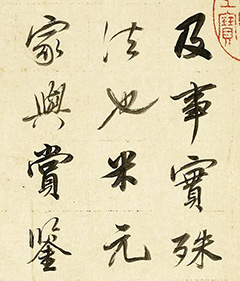 及事實殊
法也米元
家與賞鑒